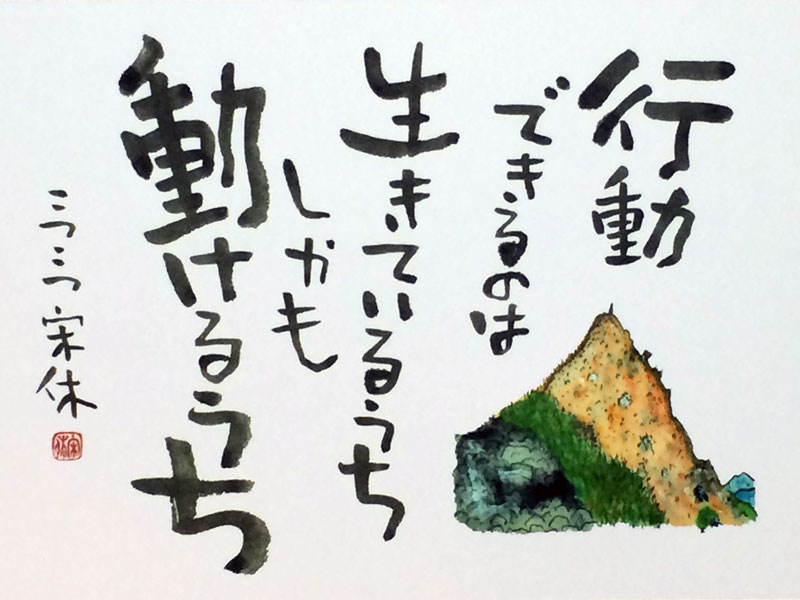 行動
できるのは
生きているうち
しかも
動けるうち
三つ三つ宗休